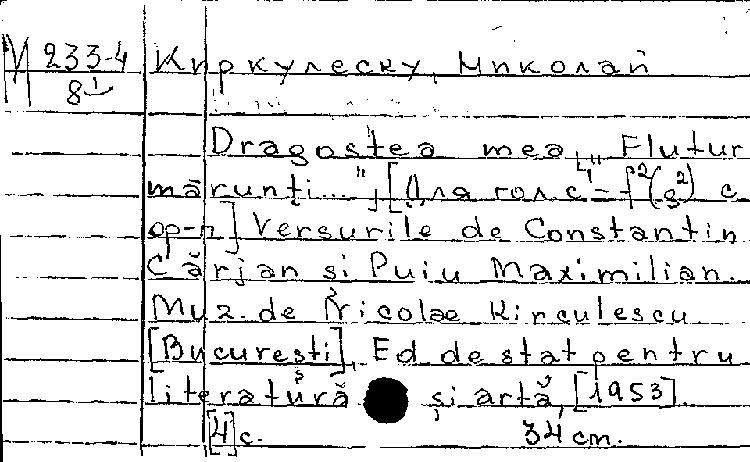 М 233-4 Киркулеску, Николай
8
Dragostea mea, „Flutur
mărunți..." [Для голс с
ор-п] Versurile de Constantin
Cârjan și Puiu Maximilian.
Muz. de Nicolae Kirculescu
[București], Ed. de stat pentru
literatură și artă, [1953].
[4] с. 34 cm.